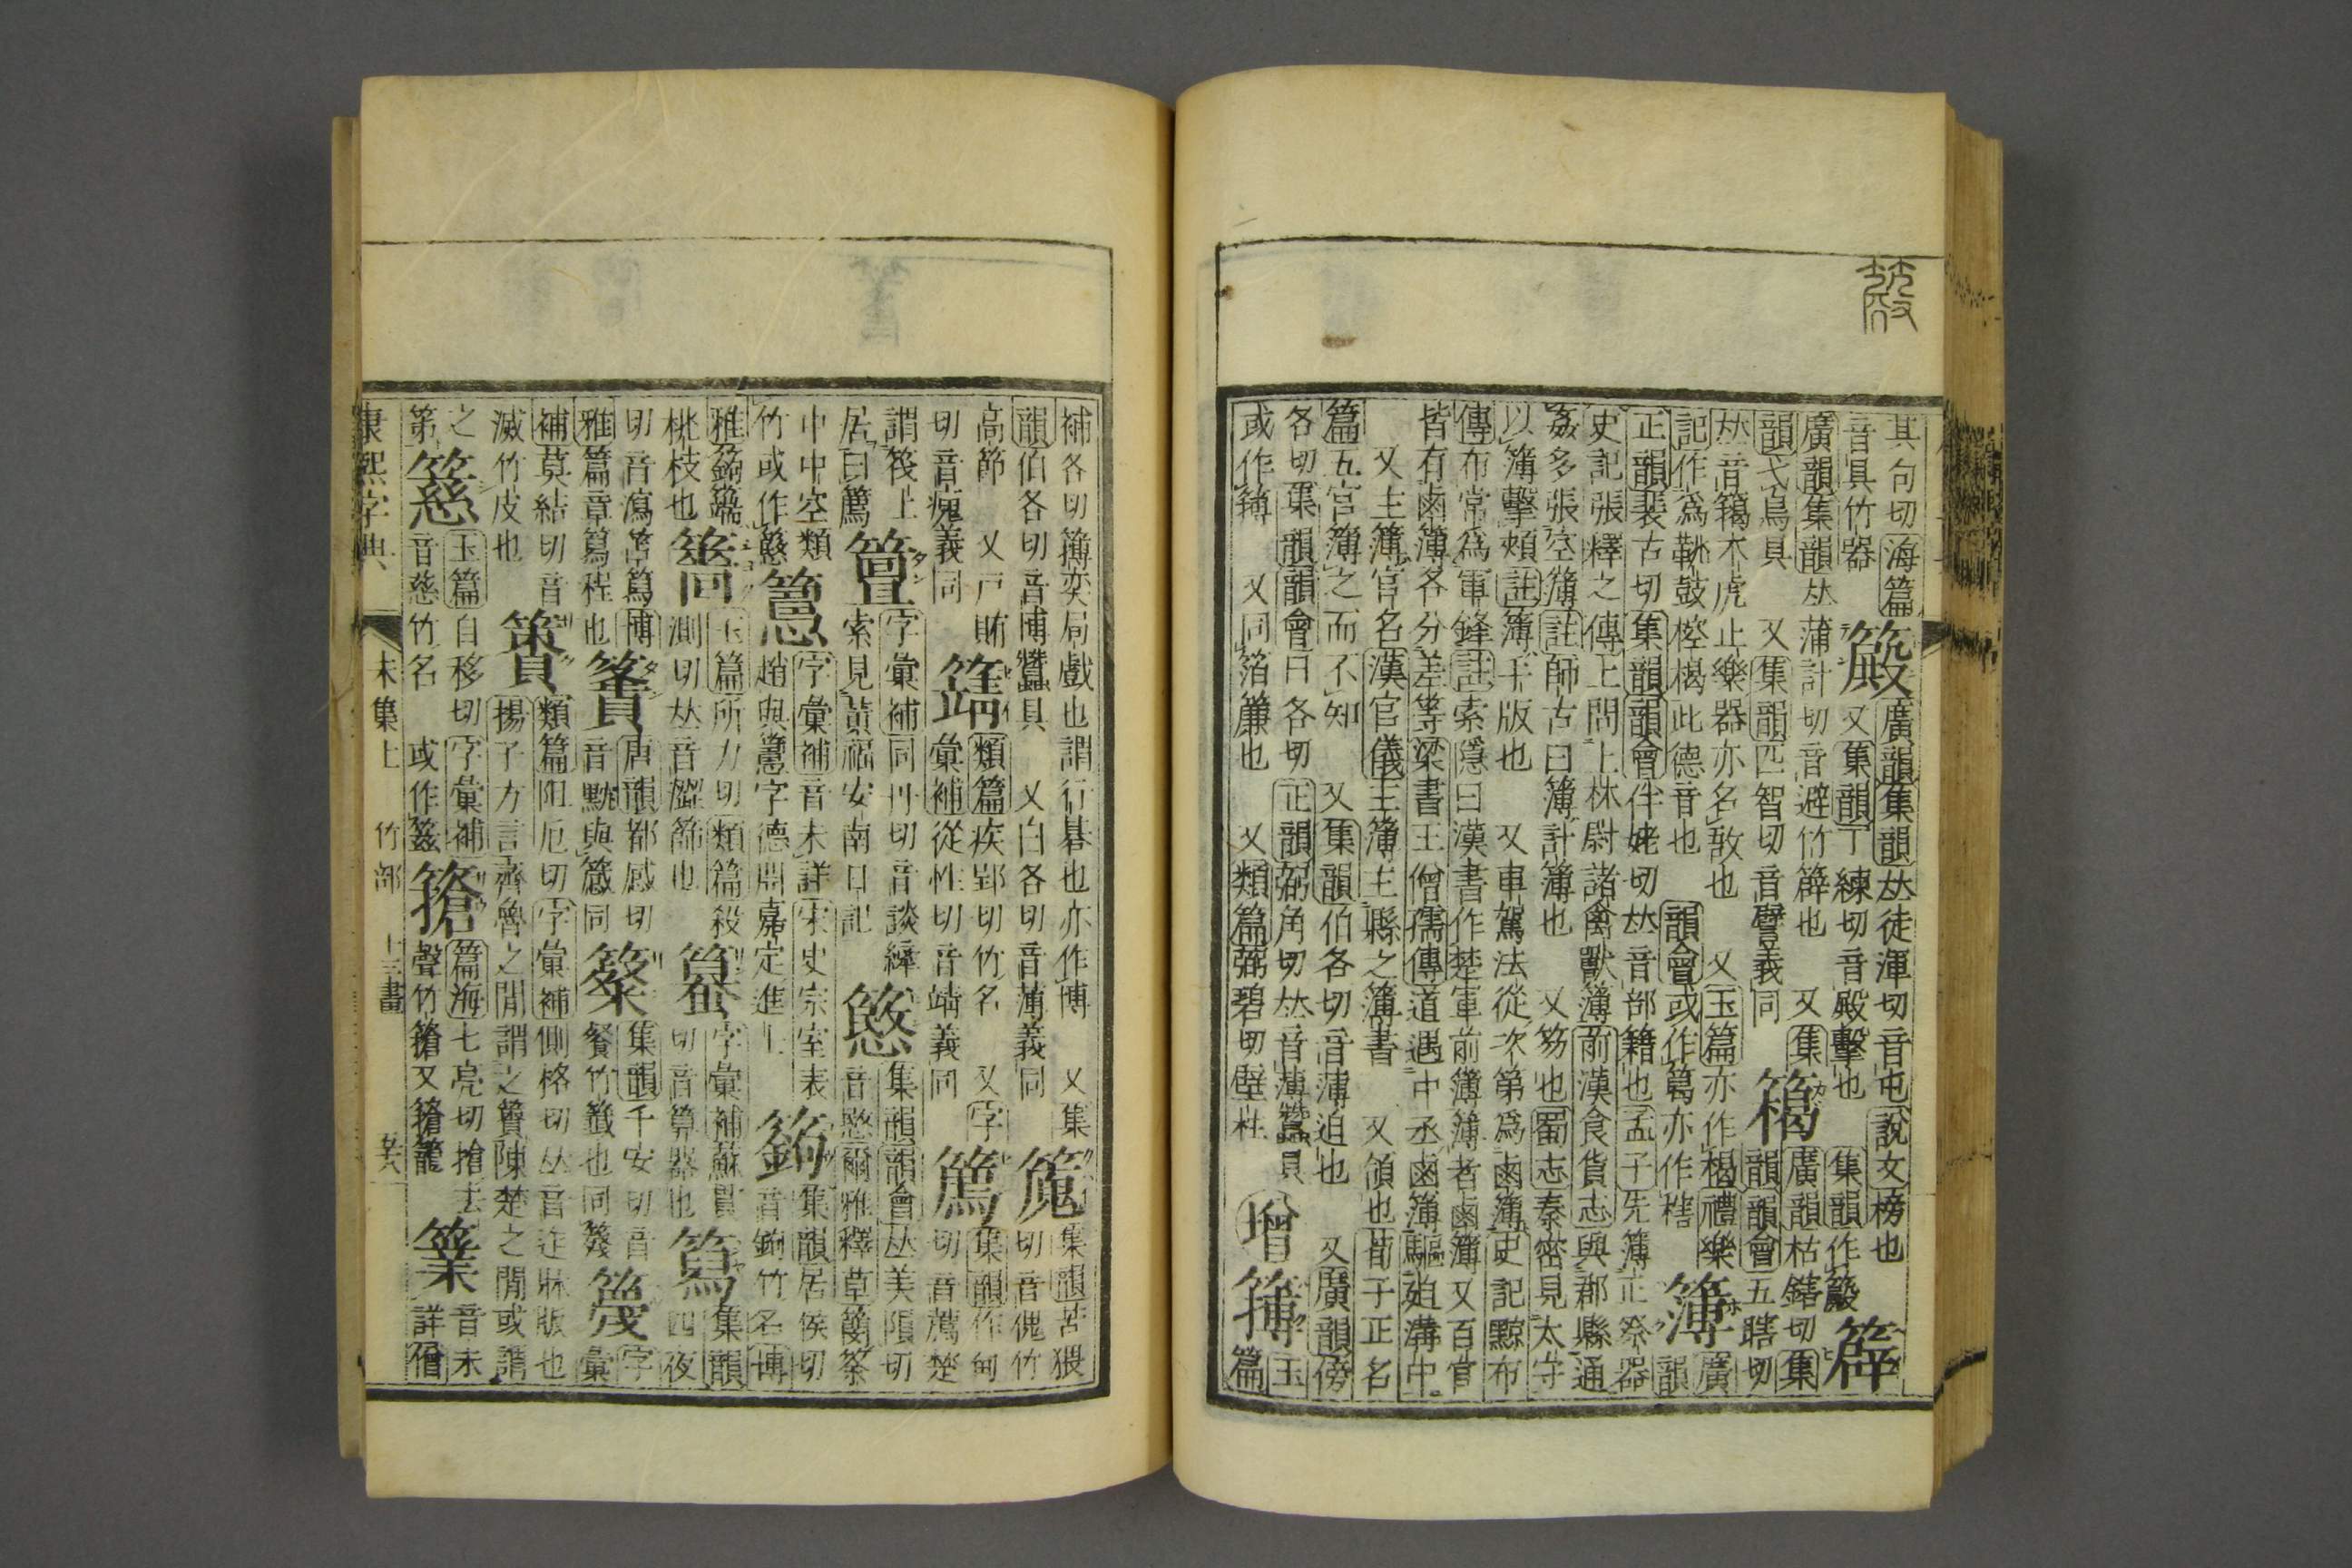 其句切海篇
音具竹器
簸
廣韻集韻𠀤徒渾切音屯說文榜也
又集韻丁練切音殿擊也
集韻作
簰
廣韻集韻𠀤蒲計切音避竹簰也
又集韻匹智切音譬義同
又集韻弋烏具
楬
廣韻枯鎋切集韻韻會五瞎切
𠀤音籍木虎止樂器亦名敔也
又玉篇亦作楬禮樂記作爲鞉鼓椌楬此德音也
韻會或作篶亦作㮫
簿
廣韻正韻裴古切集韻韻會伴姥切𠀤音部籍也孟子先簿正祭器
史記張釋之傳上問上林尉諸禽獸簿前漢食貨志與郡縣通
姦多張空簿註師古曰簿計簿也
又笏也蜀志秦宓見太守
以簿擊頰註簿手版也
又車駕法從次第爲鹵簿史記黥布
傳布常爲軍鋒註索隱曰漢書作楚軍前簿簿者鹵簿又百官
皆有鹵簿各分差等梁書王僧孺傳道遇中丞鹵簿驅迫溝中
又主簿官名漢官儀主簿主縣之簿書
又領也荀子正名
篇五官簿之而不知
又集韻伯各切音薄迫也
又廣韻傍
各切集韻韻會白各切正韻弼角切𠀤音薄蠶具
或作䈬
又同箔簾也
又類篇弼碧切壁柱
增
簙
玉篇
補各切簙奕局戲也謂行棊也亦作博
又集韻伯各切音博蠶具
又白各切音薄義同
篼
集韻苦猥切音傀竹
高節
又戸賄切音瘣義同
竫
類篇疾郢切竹名
又字彙補從性切音靖義同
篤
集韻作甸切音薦楚
謂筏上居曰篤
簹
字彙補同丹切音談繂索見黃福安南日記
慜
集韻韻會𠀤美隕切音愍爾雅釋草䉲箊中
中空類竹或作慜
簹
字彙補音未詳宋史宗室表趙與簹字德淵嘉定進士
鉤
集韻居侯切音鉤竹名博
雅鉤端桃枝也
篙
玉篇所力切類篇殺測切𠀤音澀篩也
纂
字彙補蘇貫切音算器也
篶
集韻四夜
切音瀉篙篶博雅篇章篶程也
簀
唐韻都感切音黕與箴同
簗
集韻千安切音餐竹籤也同篸
篾
字彙
補莫結切音滅竹皮也
簀
類篇阻厄切字彙補側格切𠀤音迮牀版也
揚子方言齊魯之閒謂之簀陳楚之閒或謂
之第
慈
玉篇自移切字彙補音慈竹名
或作茲
篬
篇海七亮切搶去聲竹篬又篬籠
業
音未詳僧
康熙字典
未集上 竹部 十二畫